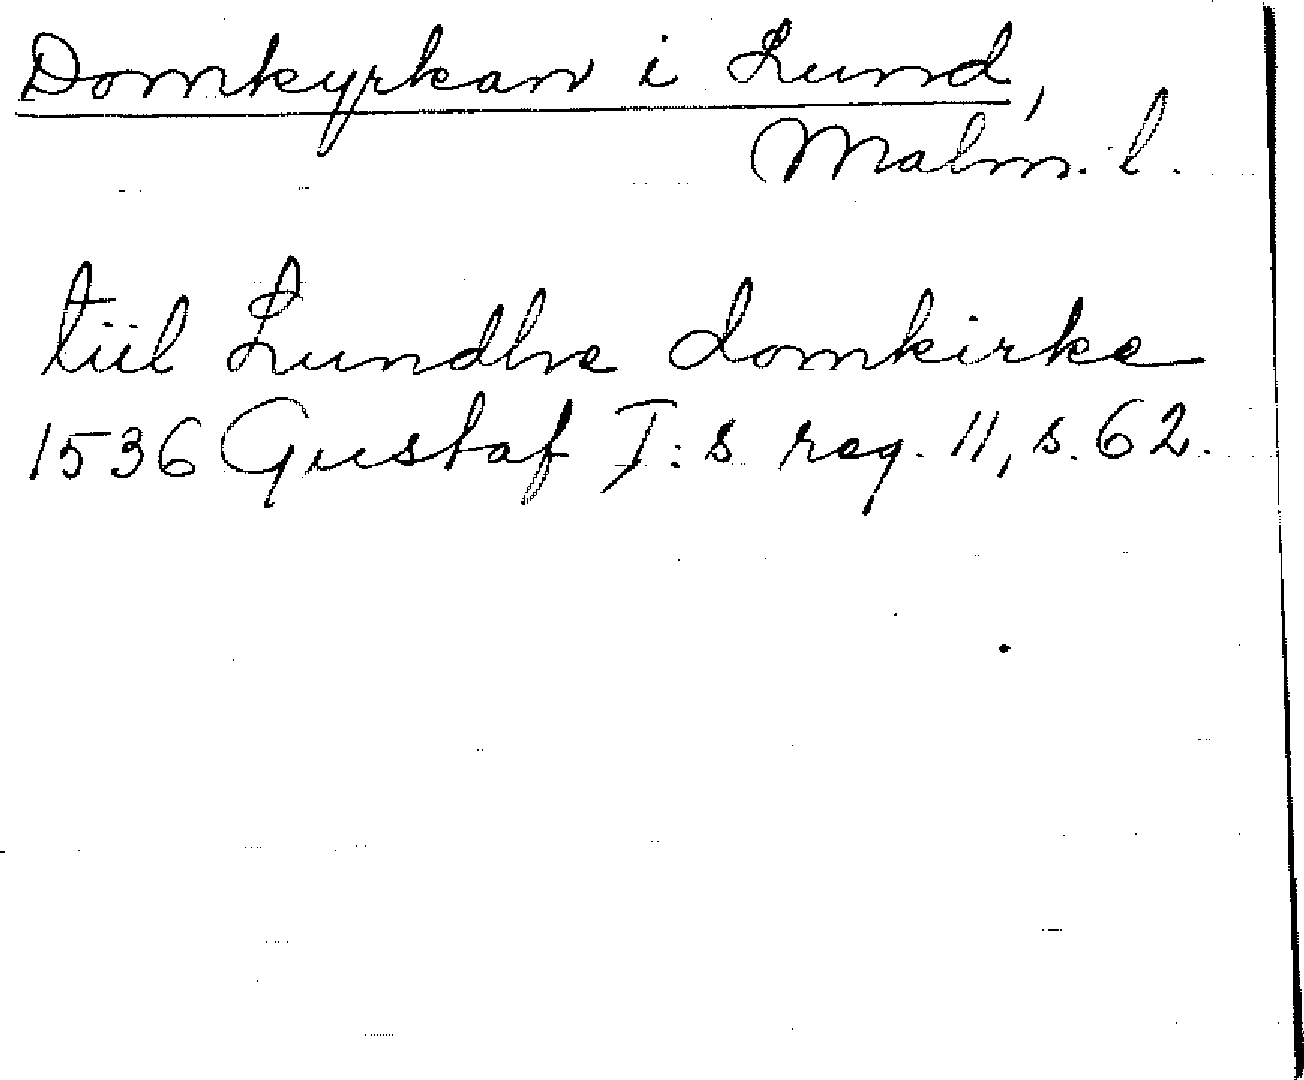 Domkyrkan i Lund,
Malm. l.
tiil Lundhe domkirke
1536 Gustaf I:s reg. 11, s. 62.